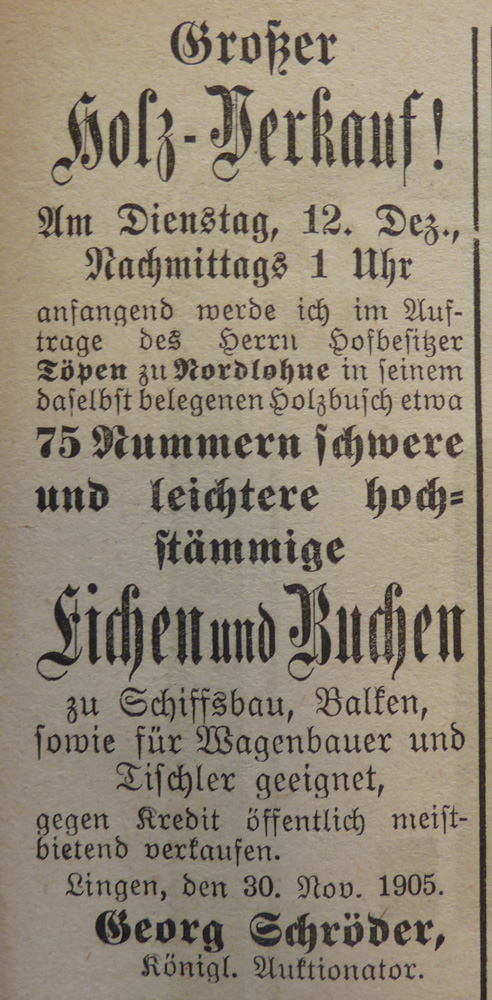 Großer
Holz-Verkauf!
Am Dienstag, 12. Dez.,
Nachmittags 1 Uhr
anfangend werde ich im Auf-
trage des Herrn Hofbesitzer
Töpen zu Nordlohne in seinem
daselbst belegenen Holzbusch etwa
75 Nummern schwere
und leichtere hoch-
stämmige
Eichen und Buchen
zu Schiffsbau, Balken,
sowie für Wagenbauer und
Tischler geeignet,
gegen Kredit öffentlich meist-
bietend verkaufen.
Lingen, den 30. Nov. 1905.
Georg Schröder,
Königl. Auktionator.